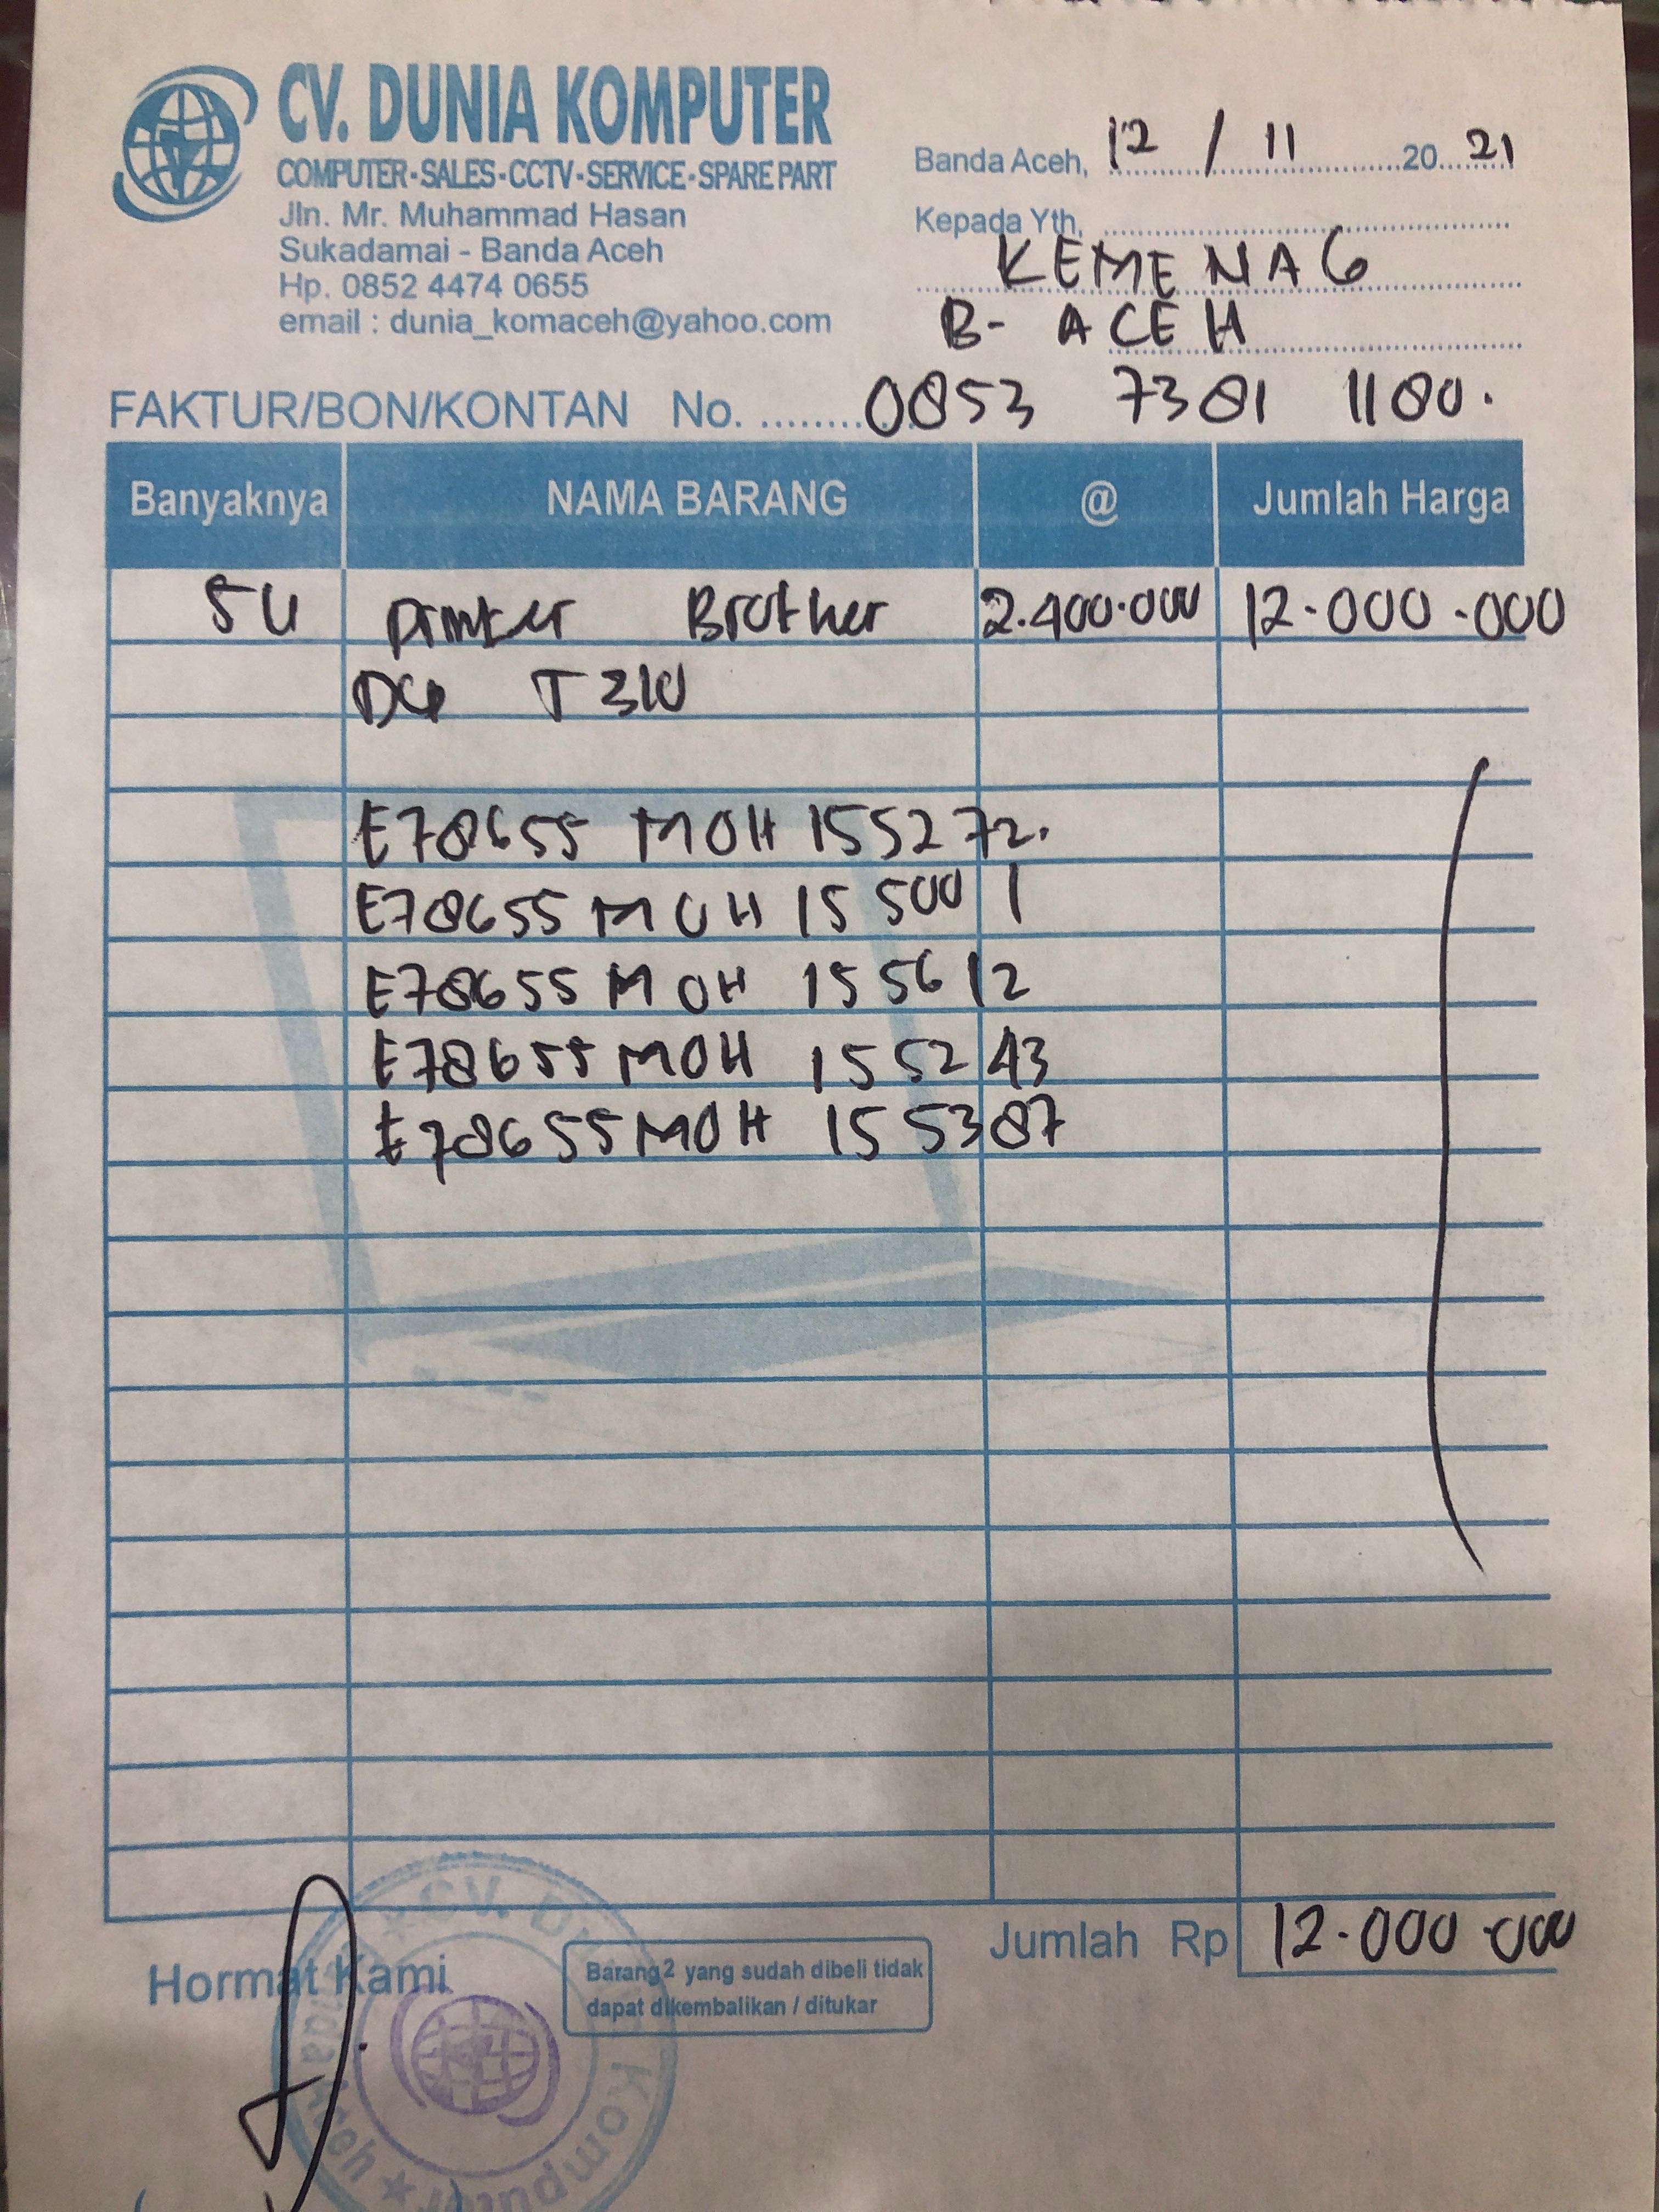 CV. DUNIA KOMPUTER
COMPUTER-SALES-CCTV-SERVICE-SPARE PART
Jln. Mr. Muhammad Hasan
Sukadamai - Banda Aceh
Hp. 0852 4474 0655
email : dunia_komaceh@yahoo.com
Banda Aceh, 12 / 11 2021
Kepada Yth,
KEMENAG
B- ACEH
FAKTUR/BON/KONTAN No. 0853 7381 1180.
Banyaknya NAMA BARANG @ Jumlah Harga
5U Printer Brother 2.400.000 12.000.000
DCP T310
E78655 MOH 155272.
E78655 MOH 155001
E78655 MOH 155612
E78655 MOH 155243
E78655 MOH 155387
Jumlah Rp 12.000.000
Hormat Kami
Barang2 yang sudah dibeli tidak
dapat dikembalikan / ditukar
CV. Komputer